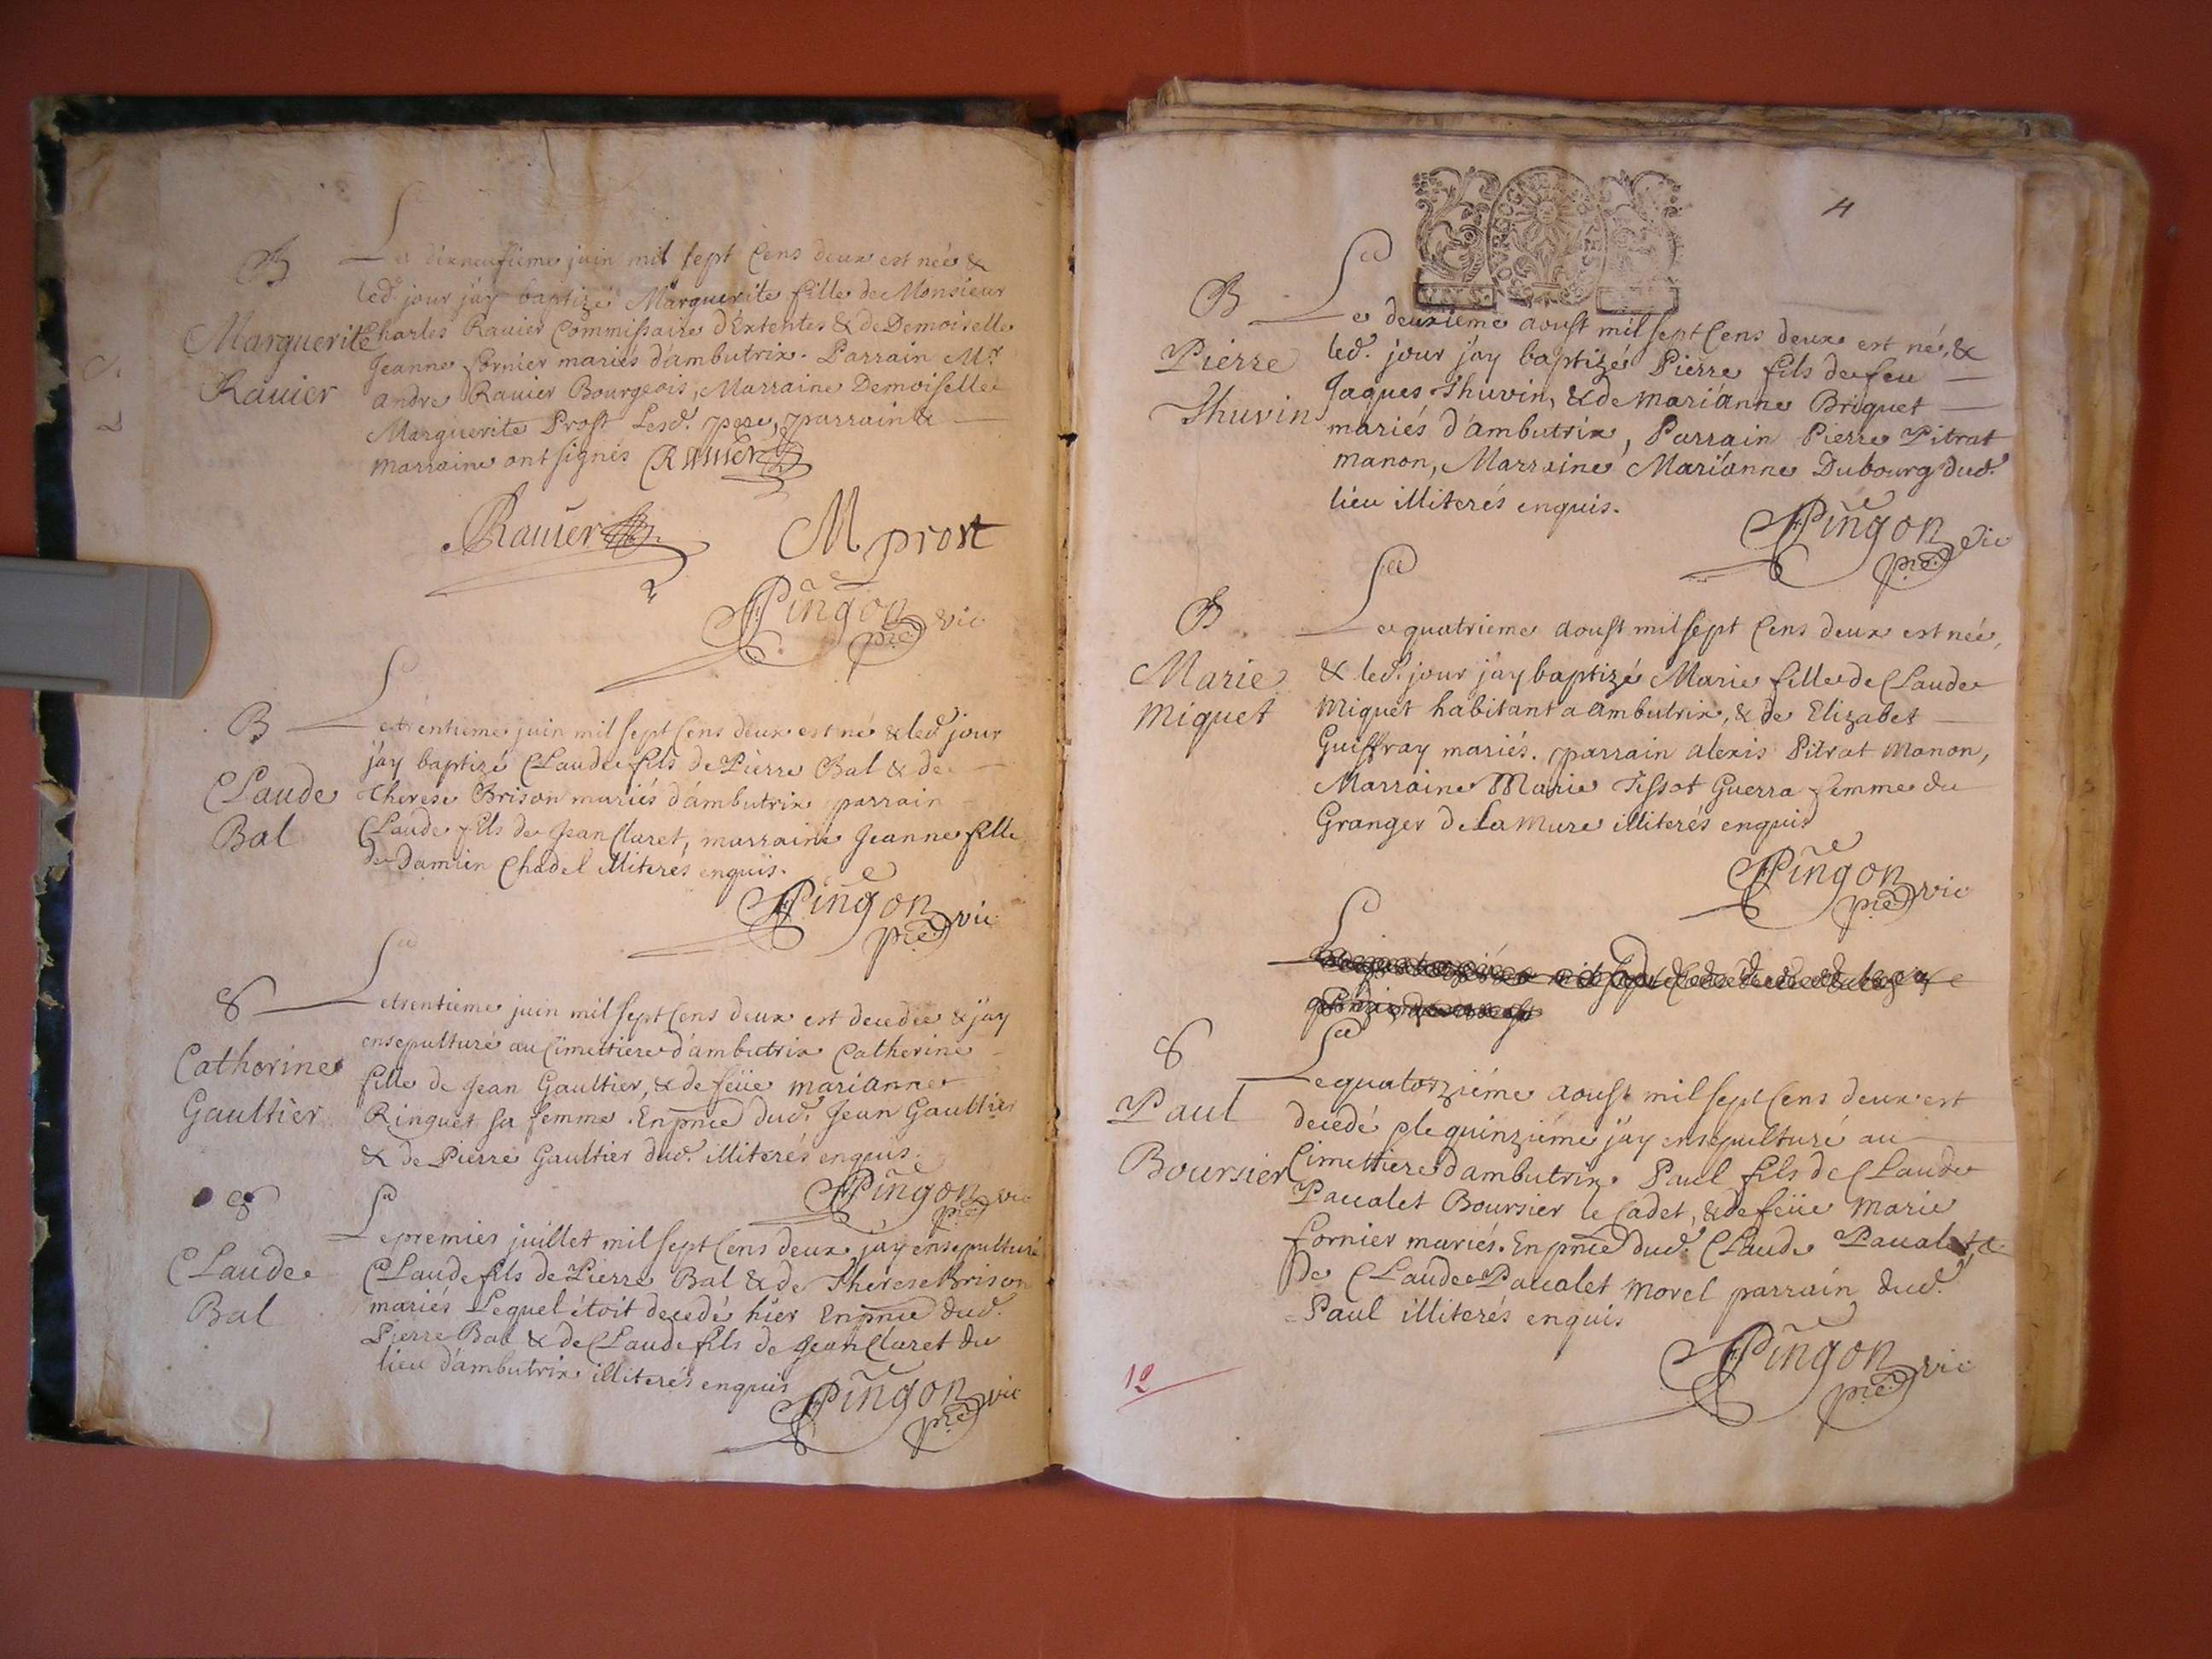 B
Marguerite
Rauier
Le dixneufieme juin mil sept Cens deux est née &
led. jour j'ay baptizé Marguerite fille de Monsieur
Charles Rauier Commissaire d'Extentes & de Demoiselle
Jeanne fornier mariés d'ambutrix. Parrain Mr.
andre Rauier Bourgeois, Marraine Demoiselle
Marguerite Prost Lesd. pere, parrain &
marraine ont signés Rauier
Rauier M prost
Pingon vic
B
Claude
Bal
Le trentieme juin mil sept Cens deux est né & led jour
j'ay baptizé Claude fils de Pierre Bal & de
Therese Brison mariés d'ambutrix parrain
Claude fils de Jean Claret, marraine Jeanne fille
de Damien Chadel illiterés enquis.
Pingon vic
S
Catherine
Gaultier
Le trentieme juin mil sept Cens deux est decedée & j'ay
ensepulturé au Cimettiere d'ambutrix Catherine
fille de Jean Gaultier, & de feüe marianne
Ringuet sa femme. En pnce dud. Jean Gaultier
& de Pierre Gaultier dud. illiterés enquis.
Pingon vic
S
Claude
Bal
Le premier juillet mil sept Cens deux j'ay ensepulturé
Claude fils de Pierre Bal & de Therese Brison
mariés Lequel étoit decedé hier En pnce dud.
Pierre Bal & de Claude fils de Jean Claret du
lieu d'ambutrix illiterés enquis
Pingon vic
4
B
Pierre
Thuvin
Le deuxieme aoust mil sept Cens deux est né, &
led. jour j'ay baptizé Pierre fils de feu
Jaques Thuvin, & de marianne Briquet
mariés d'ambutrix, Parrain Pierre Pitrat
manon, Marraine Marianne Dubourg dud.
lieu illiterés enquis.
Pingon vic
B
Marie
Miguet
Le quatrieme aoust mil sept Cens deux est née,
& led. jour j'ay baptizé Marie fille de Claude
Miguet habitant a ambutrix, & de Elizabet
Guiffray mariés. parrain alexis Pitrat Manon,
Marraine Marie Tissot Guerra femme du
Granger de La Mure illiterés enquis
Pingon vic
S
Paul
Boursier
Le quatorziéme aoust mil sept Cens deux est
decedé & le quinziéme j'ay ensepulturé au
Cimettiere d'ambutrix. Paul fils de Claude
Paucalet Boursier le Cadet, & de feüe Marie
fornier mariés. En pnce dud. Claude Paucalet, &
de Claude Paucalet Morel parrain dud.
Paul illiterés enquis
Pingon vic
12